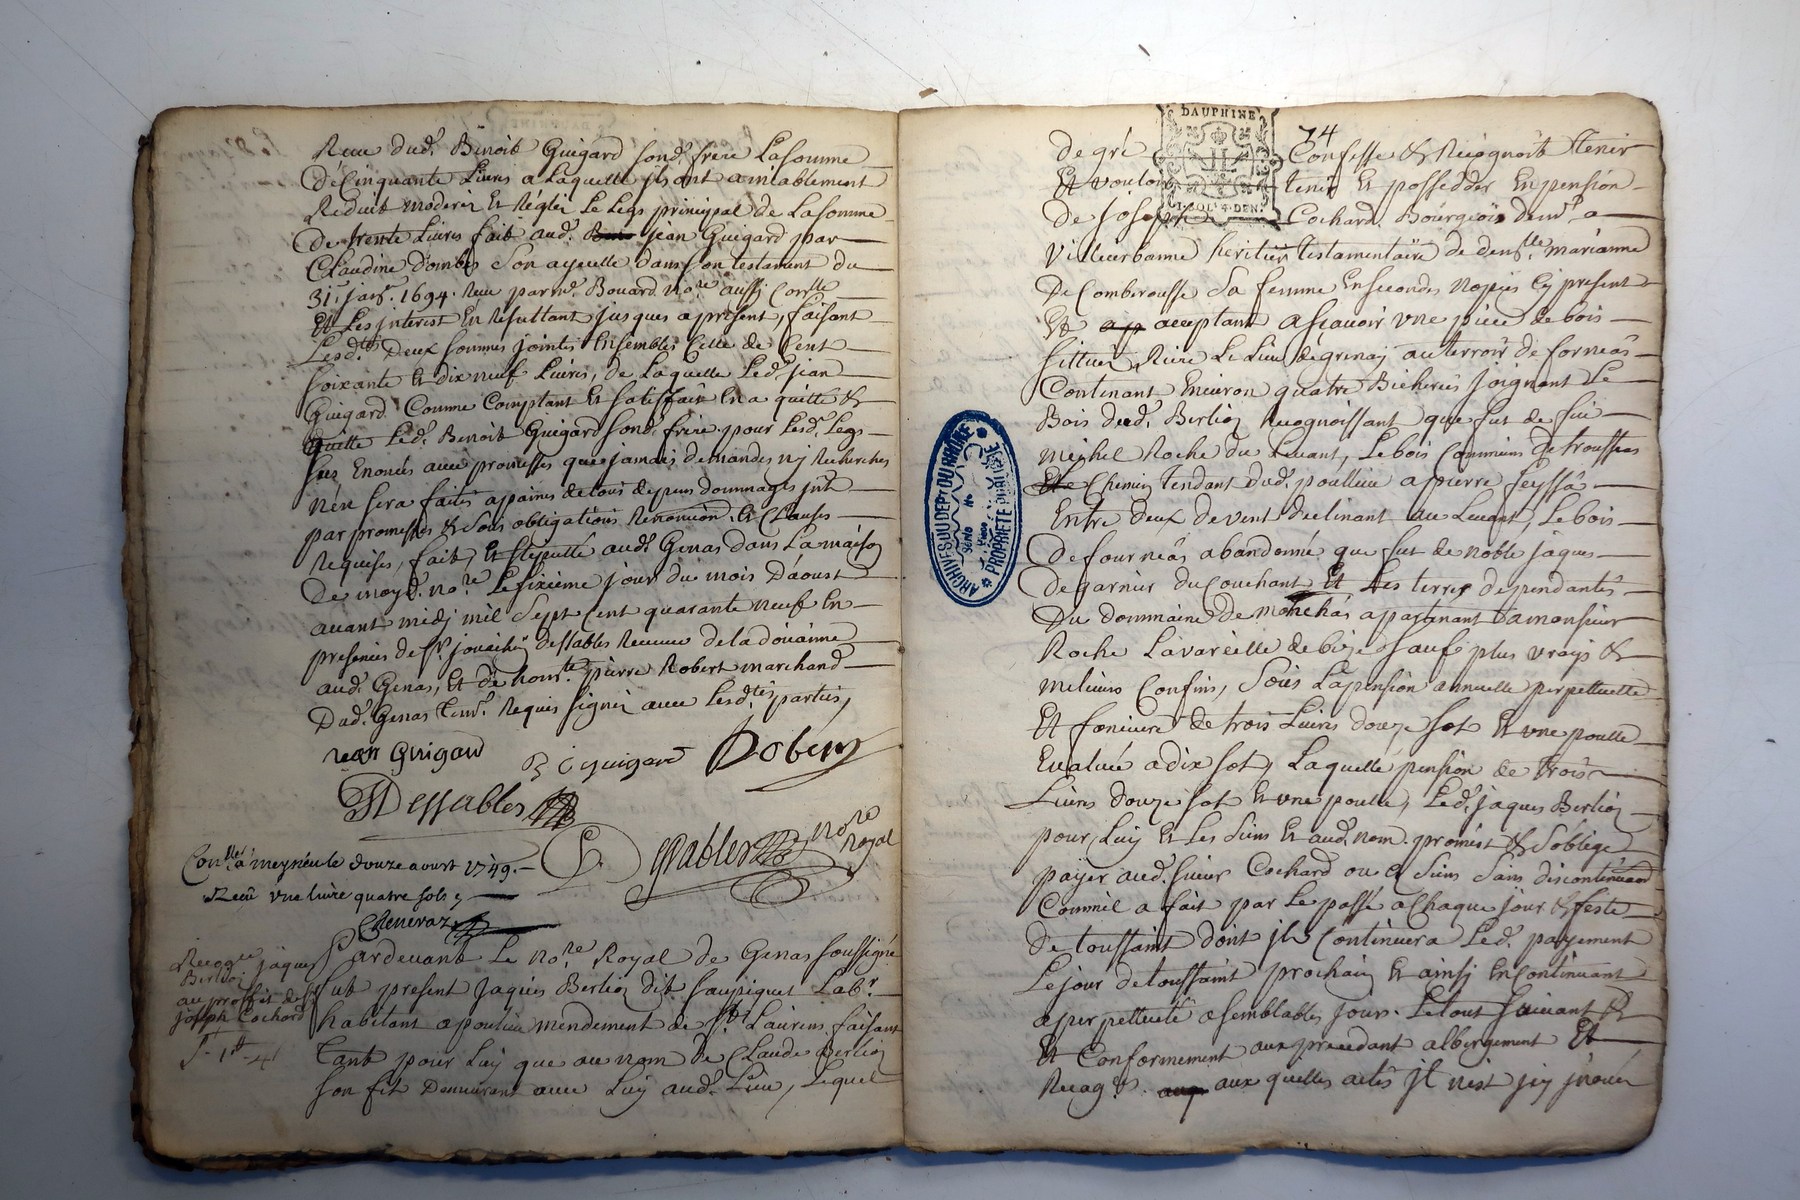 Reçue dud. Benoit Guigard sond. frere La somme
De Cinquante Livres a Laquelle jls ont amiablement
Reduit moderé Et Réglé Le Legs prinsypal de La somme
De trente Livres fait aud. jean Guigard par
Claudine Dombes Son ayeulle dans son testament du
31e janr. 1694. Receu par me. Bouard nore. aussy Conslle
Et Les jnterest En Resultant jusques a présent, faisant
Lesdtes Deux sommes jointes Ensembles Celle de Cent
soixante Et dix neuf Livres, de Laquelle Led. jean
Guigard Comme Comptant Et satisfait En a quitté &
quitte Led. Benoit Guigard sond. frere pour Lesd. Legs
sus Enoncés avec promesses que jamais demandes ny Recherches
n'en sera faites a paines de tous depens dommages jnt
par promesses & sous obligations Renonciōn. Et Clauses
Requises, fait, Et stipullé aud. Genas dans La maison
De moyd. nore. Le sizième jour du mois D'aoust
avant midj mil sept Cent quarante neuf En
presences de sr. joachin Dessables Receveur de la doüanne
aud. Genas, Et de honte. pierre Robert marchand
Dud. Genas Temr. Requis signés avec Lesdtes parties,
jean Guigard B Guigard Robert
JDessables
Dessables nore Royal
Conllé a meyzieu le douze aoust 1749.
Reçu une livre quatre sols
Cheneraz
Recogce jaques
Berlioz
au proffit de sr
joseph Cochard
Pardevant Le nore Royal de Genas soussigné
fut present Jaques Berlioz dit saupiquet Labr.
habitant a poulieu mendement de st. Laurens faisant
Tant pour Luy que au nom de Claude Berlioz
son fils Demeurant avec Luy aud. Lieu, Lequel
DAUPHINE
74
De gré Confesse & Recognoit tenir
Et vouloir tenir Et possedder En pension
De Joseph Cochard Bourgeois demt. a
Villeurbanne heritier testamentaire de demlle. marianne
De Comberousse Sa femme En secondes nopces Cy present
Et acceptant ascavoir une piece de bois
sittuée Riere Le Lieu de grenay au terroir de forneas
Contenant Environ quatre Bicherées joignant Le
Bois dud. Berlioz Recognoissant que fut de feu
michel Roche du Levant, Le bois Commun de trousseas
Chemin tendant dud. poullieu a pierre feyssas
Entre deux de vent declinant au Levant, Le bois
De fourneas abandonné que fut de noble jaques
De garnier du Couchant Et Les terres dependantes
Du dommaine de monchas apartenant a monsieur
Roche Lavareille de bize sauf plus vrays &
meliures Confins, sous La pension annuelle perpettuelle
Et fonciere de trois Livres douze sol Et une poulle
Evaluée a dix sol, Laquelle pension de trois
Livres douze sol Et une poulle, Led. jaques Berlioz
pour Luy Et Les siens Et aud. nom promest & soblige
payer aud. sieur Cochard ou es siens sans discontinuaōn
Comme il a fait par Le passé a Chaque jour & feste
De toussaint dont jl Continuera Led. payement
Le jour de toussaint prochain Et ainsj En Continuant
a perpettuité a semblables jours. Le tout suivant &
Et Conformement aux precedant albergement Et
Recogns. aux quelles actes jl n'est jcy jnové
ARCHIVES DU DEPT DU RHONE
Série
No
PROPRIETE PUBLIQUE